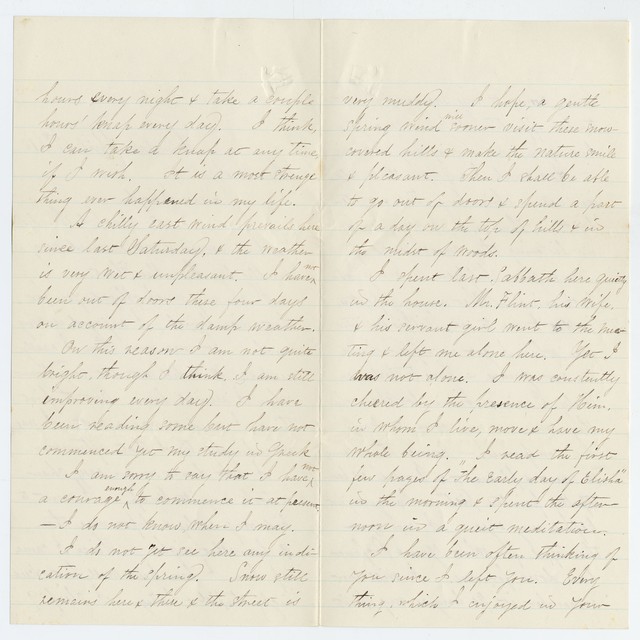 hours every night & take a couple
hours' knap every day. I think,
I can take a knap at any time,
if I wish. It is a most strange
thing ever happened in my life.
A chilly east wind prevails here
since last Saturday, & the weather
is very wet & unpleasant. I have not
been out of doors these four days
on account of the damp weather.
On this reason I am not quite
bright, though I think, I am still
improving every day. I have
been reading some but have not
commenced yet my study in Greek
I am sorry to say that I have not
a courage enough to commence it at present.
— I do not know, when I may.
I do not yet see here any indi-
cation of the Spring. Snow still
remains here & there & the street is
very muddy. I hope, a gentle
spring wind will sooner visit these snow-
covered hills & make the nature smile
& pleasant. When I shall be able
to go out of doors & spend a part
of a day on the top of hills & in
the midst of woods.
I spent last Sabbath here quietly
in the house. Mr. Flint, his wife,
& his servant girl went to the mee-
ting & left me alone here. Yet I
was not alone. I was constantly
cheered by the presence of Him,
in whom I live, move & have my
whole being. I read the first
few pages of "The early day of Elisha"
in the morning & spent the after-
noon in a quiet meditation.
I have been often thinking of
you since I left you. Every
thing, which I enjoyed in your